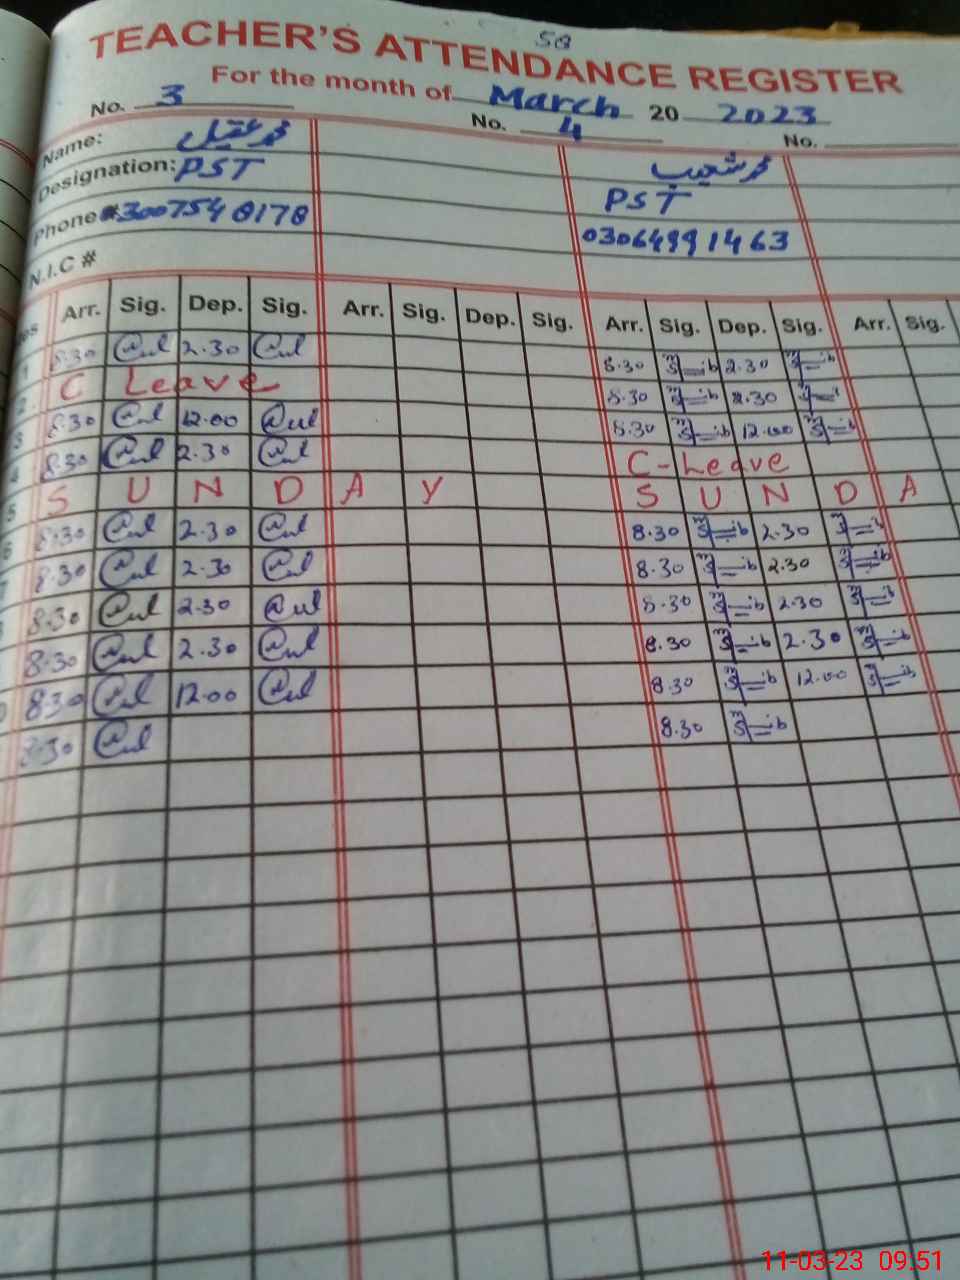 58
TEACHER'S ATTENDANCE REGISTER
For the month of March 20 2023
No. 3 No. 4 No.
Name: محمد عقیل محمد شعیب
Designation: PST PST
Phone # 3007548178 03064991463
N.I.C #
Arr. Sig. Dep. Sig. Arr. Sig. Dep. Sig. Arr. Sig. Dep. Sig. Arr. Sig.
1 8.30 2.30 8.30 2.30
2 C Leave 8.30 2.30
3 8.30 12.00 8.30 12.00
4 8.30 2.30 C-Leave
5 S U N D A Y S U N D A
6 8.30 2.30 8.30 2.30
8.30 2.30 8.30 2.30
8.30 2.30 8.30 2.30
8.30 2.30 8.30 2.30
8.30 12.00 8.30 12.00
8.30 8.30
11-03-23 09.51